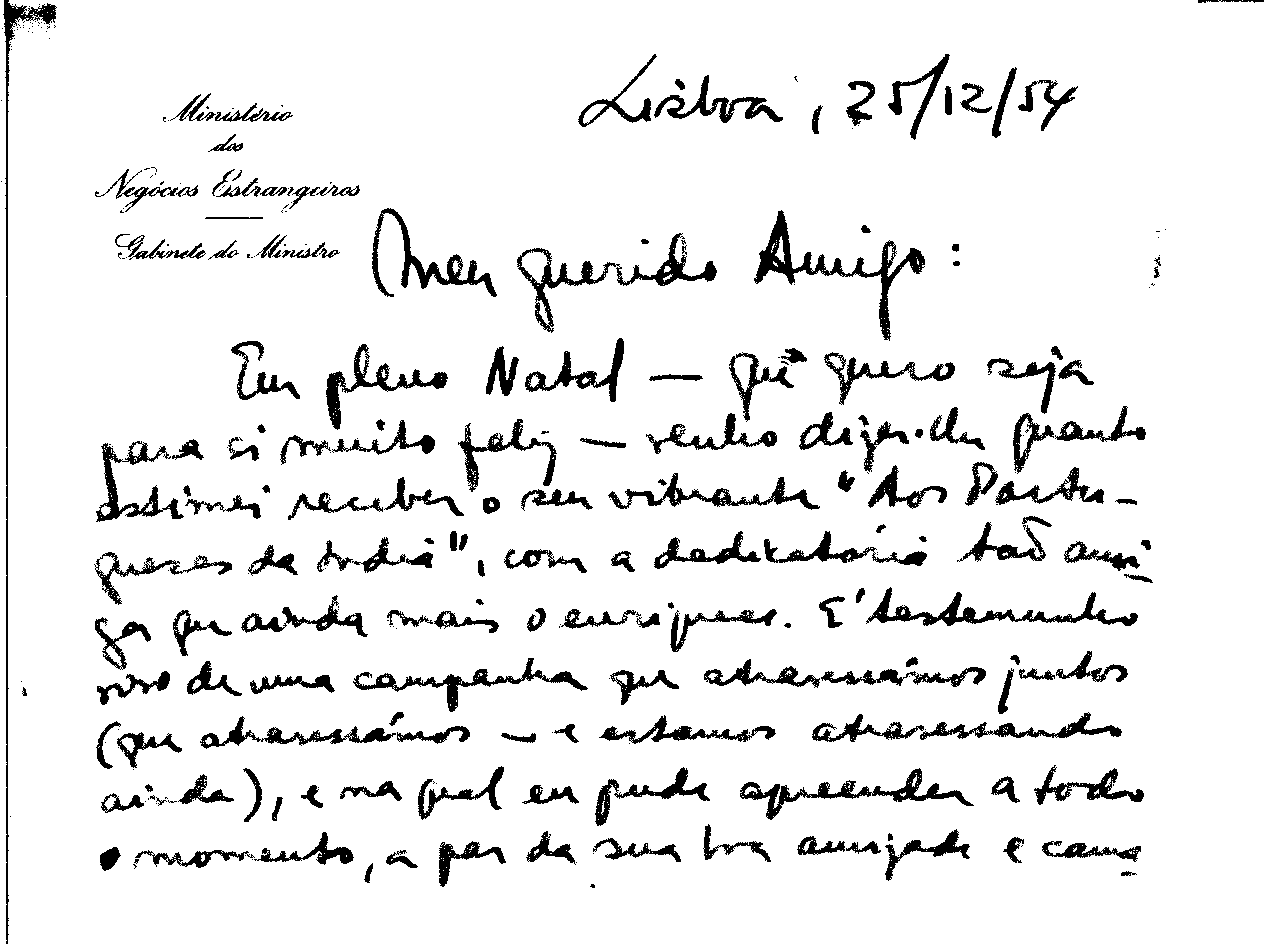 Lisboa, 25/12/54
Ministério
dos
Negócios Estrangeiros
Gabinete do Ministro
Meu querido Amigo:
Em pleno Natal — que quero seja
para si muito feliz — venho dizer-lhe quanto
estimei receber o seu vibrante "Aos Portu-
gueses da India", com a dedicatória tão ami-
ga que ainda mais o enriquece. E' testemunho
vivo de uma campanha que atravessámos juntos
(que atravessámos — e estamos atravessando
ainda), e na qual eu pude apreender a todo
o momento, a par da sua boa amizade e cama-